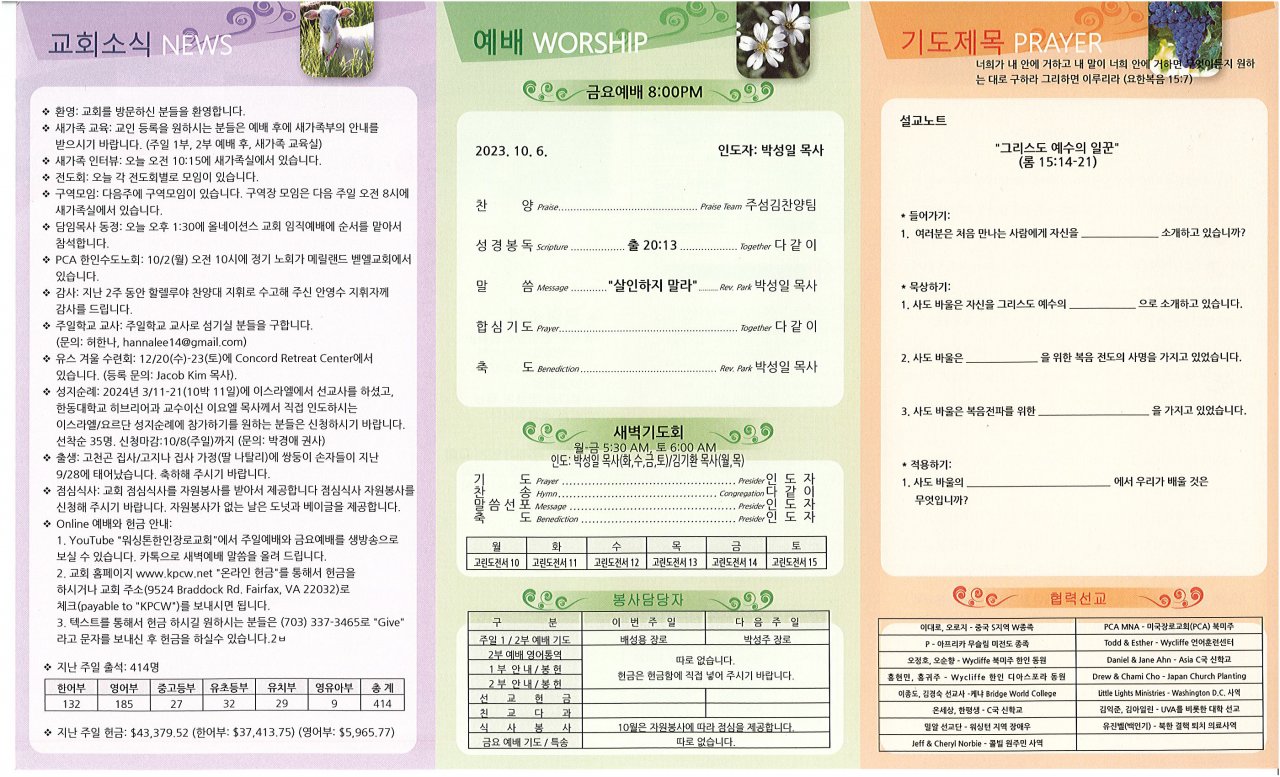 교회소식 NEWS
❖ 환영: 교회를 방문하신 분들을 환영합니다.
❖ 새가족 교육: 교인 등록을 원하시는 분들은 예배 후에 새가족부의 안내를
받으시기 바랍니다. (주일 1부, 2부 예배 후, 새가족 교육실)
❖ 새가족 인터뷰: 오늘 오전 10:15에 새가족실에서 있습니다.
❖ 전도회: 오늘 각 전도회별로 모임이 있습니다.
❖ 구역모임: 다음주에 구역모임이 있습니다. 구역장 모임은 다음 주일 오전 8시에
새가족실에서 있습니다.
❖ 담임목사 동정: 오늘 오후 1:30에 올네이션스 교회 임직예배에 순서를 맡아서
참석합니다.
❖ PCA 한인수도노회: 10/2(월) 오전 10시에 정기 노회가 메릴랜드 벧엘교회에서
있습니다.
❖ 감사: 지난 2주 동안 할렐루야 찬양대 지휘로 수고해 주신 안영수 지휘자께
감사를 드립니다.
❖ 주일학교 교사: 주일학교 교사로 섬기실 분들을 구합니다.
(문의: 허한나, hannalee14@gmail.com)
❖ 유스 겨울 수련회: 12/20(수)-23(토)에 Concord Retreat Center에서
있습니다. (등록 문의: Jacob Kim 목사).
❖ 성지순례: 2024년 3/11-21(10박 11일)에 이스라엘에서 선교사를 하셨고,
한동대학교 히브리어과 교수이신 이요엘 목사께서 직접 인도하시는
이스라엘/요르단 성지순례에 참가하기를 원하는 분들은 신청하시기 바랍니다.
선착순 35명. 신청마감:10/8(주일)까지 (문의: 박경애 권사)
❖ 출생: 고천곤 집사/고지나 집사 가정(딸 나탈리)에 쌍둥이 손자들이 지난
9/28에 태어났습니다. 축하해 주시기 바랍니다.
❖ 점심식사: 교회 점심식시를 자원봉사를 받아서 제공합니다 점심식사 자원봉사를
신청해 주시기 바랍니다. 자원봉사가 없는 날은 도넛과 베이글을 제공합니다.
❖ Online 예배와 헌금 안내:
1. YouTube "워싱톤한인장로교회"에서 주일예배와 금요예배를 생방송으로
보실 수 있습니다. 카톡으로 새벽예배 말씀을 올려 드립니다.
2. 교회 홈페이지 www.kpcw.net "온라인 헌금"를 통해서 헌금을
하시거나 교회 주소(9524 Braddock Rd. Fairfax, VA 22032)로
체크(payable to "KPCW")를 보내시면 됩니다.
3. 텍스트를 통해서 헌금 하시길 원하시는 분들은 (703) 337-3465로 "Give"
라고 문자를 보내신 후 헌금을 하실수 있습니다.2ㅂ
❖ 지난 주일 출석: 414명
한어부 영어부 중고등부 유초등부 유치부 영유아부 총 계
132 185 27 32 29 9 414
❖ 지난 주일 헌금: $43,379.52 (한어부: $37,413.75) (영어부: $5,965.77)
예배 WORSHIP
금요예배 8:00PM
2023. 10. 6. 인도자: 박성일 목사
찬 양 Praise Praise Team 주섬김찬양팀
성경봉독 Scripture 출 20:13 Together 다 같 이
말 씀 Message "살인하지 말라" Rev. Park 박성일 목사
합심기도 Prayer Together 다 같 이
축 도 Benediction Rev. Park 박성일 목사
새벽기도회
월-금 5:30 AM, 토 6:00 AM
인도: 박성일 목사(화,수,금,토)/김기환 목사(월,목)
기 도 Prayer Presider 인 도 자
찬 송 Hymn Congregation 다 같 이
말씀선포 Message Presider 인 도 자
축 도 Benediction Presider 인 도 자
월 화 수 목 금 토
고린도전서 10 고린도전서 11 고린도전서 12 고린도전서 13 고린도전서 14 고린도전서 15
봉사담당자
구 분 이 번 주 일 다 음 주 일
주일 1 / 2부 예배 기도 배성용 장로 박성주 장로
2부 예배 영어통역
1 부 안 내 / 봉 헌
2 부 안 내 / 봉 헌
따로 없습니다.
헌금은 헌금함에 직접 넣어 주시기 바랍니다.
선 교 헌 금
친 교 다 과
식 사 봉 사 10월은 자원봉사에 따라 점심을 제공합니다.
금요 예배 기도 / 특송 따로 없습니다.
기도제목 PRAYER
너희가 내 안에 거하고 내 말이 너희 안에 거하면 무엇이든지 원하
는 대로 구하라 그리하면 이루리라 (요한복음 15:7)
설교노트
"그리스도 예수의 일꾼"
(롬 15:14-21)
* 들어가기:
1. 여러분은 처음 만나는 사람에게 자신을 ______________ 소개하고 있습니까?
* 묵상하기:
1. 사도 바울은 자신을 그리스도 예수의 ____________ 으로 소개하고 있습니다.
2. 사도 바울은 _____________ 을 위한 복음 전도의 사명을 가지고 있었습니다.
3. 사도 바울은 복음전파를 위한 ____________________ 을 가지고 있었습니다.
* 적용하기:
1. 사도 바울의 __________________________ 에서 우리가 배울 것은
무엇입니까?
협력선교
이대로, 오로지 - 중국 S지역 W종족 PCA MNA - 미국장로교회(PCA) 북미주
P - 아프리카 무슬림 미전도 종족 Todd & Esther - Wycliffe 언어훈련센터
오정호, 오순항 - Wycliffe 북미주 한인 동원 Daniel & Jane Ahn - Asia C국 신학교
홍현민, 홍귀주 - Wycliffe 한인 디아스포라 동원 Drew & Chami Cho - Japan Church Planting
이종도, 김경숙 선교사 -케냐 Bridge World College Little Lights Ministries - Washington D.C. 사역
온세상, 한평생 - C국 신학교 김익준, 김아일린 - UVA를 비롯한 대학 선교
밀알 선교단 - 워싱턴 지역 장애우 유진벨(백인기) - 북한 결핵 퇴치 의료사역
Jeff & Cheryl Norbie - 콜빌 원주민 사역